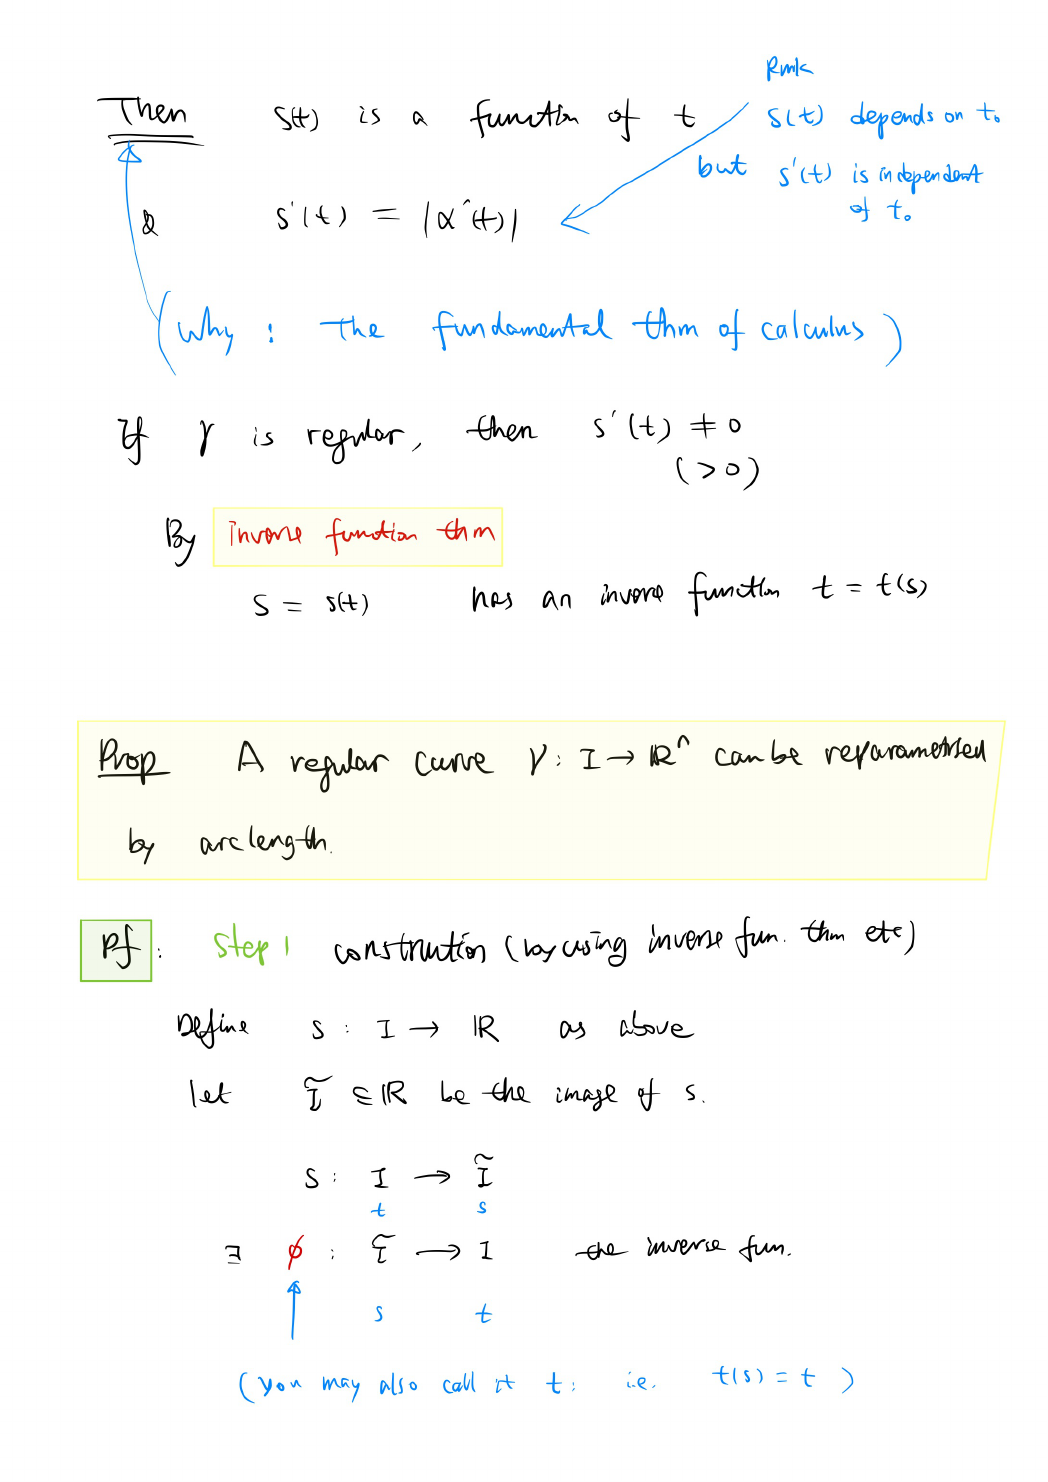 Rmk
Then s(t) is a function of t
s(t) depends on t₀
but s'(t) is independent
of t₀
& s'(t) = |α'(t)|
(Why : The fundamental thm of calculus)
If γ is regular, then s'(t) ≠ 0
(>0)
By inverse function thm
s = s(t) has an inverse function t = t(s)
Prop A regular curve γ: I → ℝⁿ can be reparametrised
by arclength.
Pf: Step 1 construction (by using inverse fun. thm etc)
Define s : I → ℝ as above
let Ĩ ⊆ ℝ be the image of s.
s : I → Ĩ
t s
∃ ϕ : Ĩ → I the inverse fun.
s t
(you may also call it t: i.e. t(s) = t)